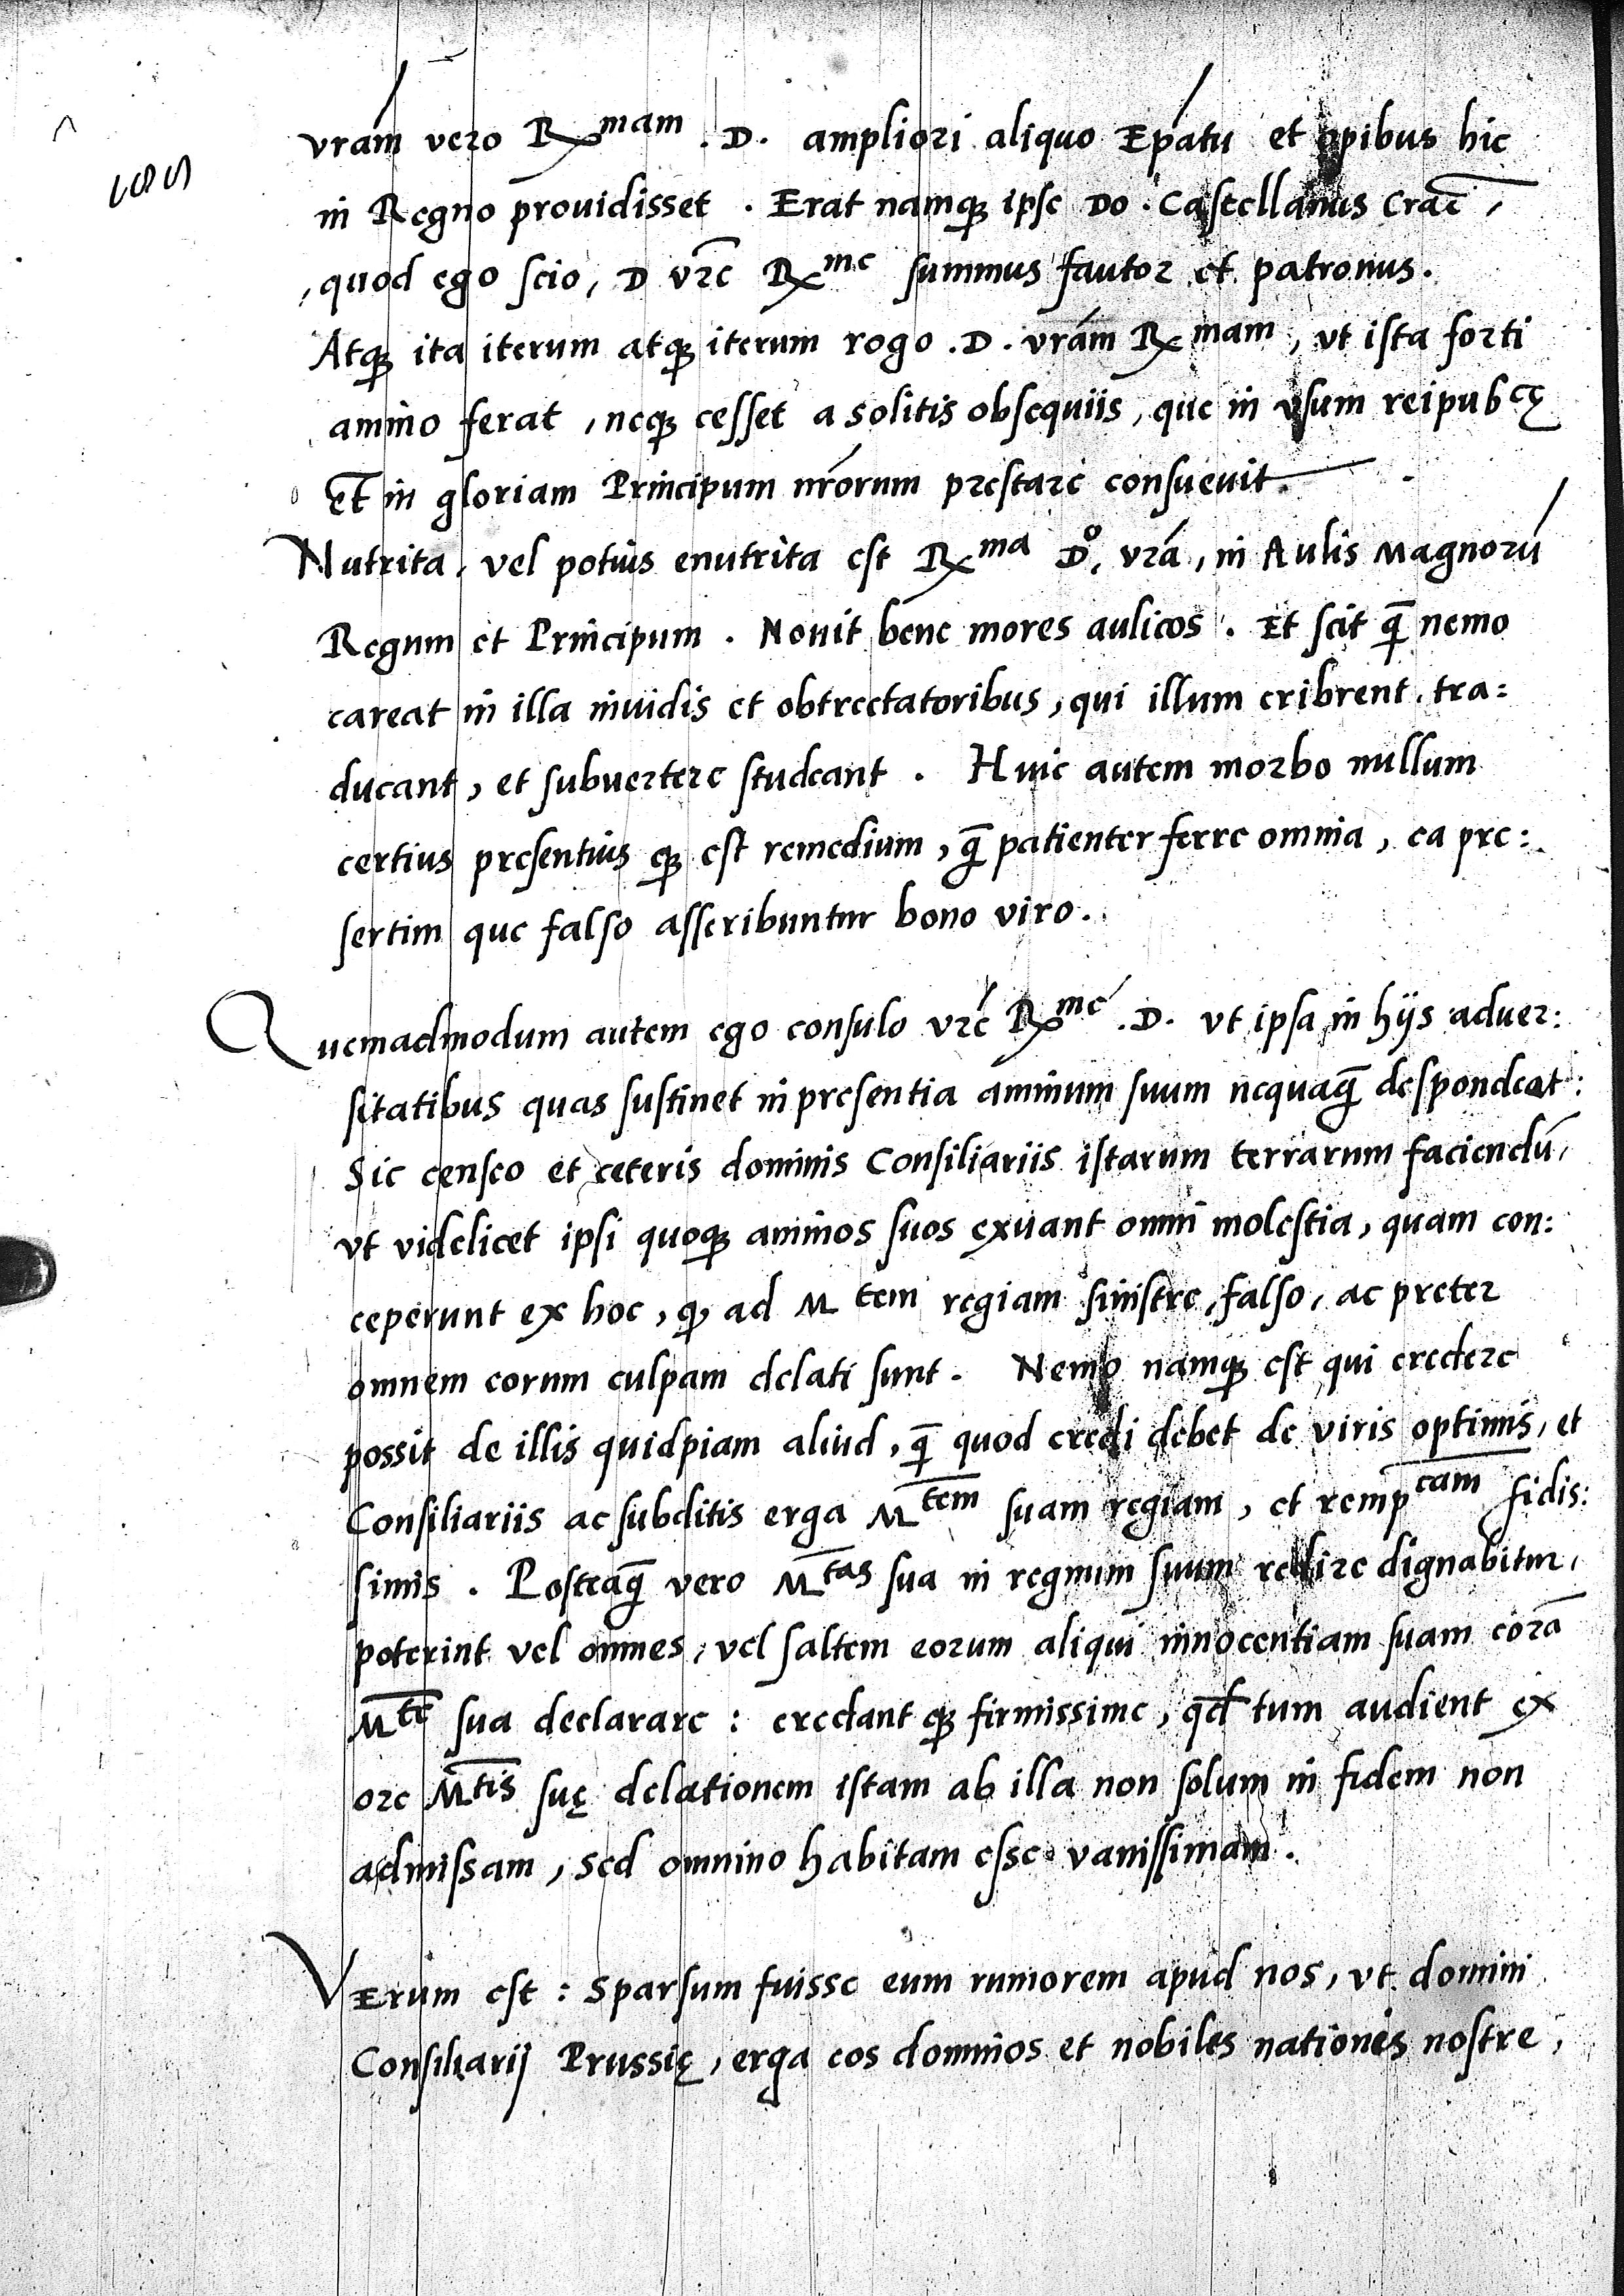 vram vero Rxmam . D. ampliori aliquo Epatu et opibus hic
in Regno prouidisset . Erat namq; ipse Do. Castellanus Crac̄,
quod ego scio, D vr̄e Rxme summus fautor et patronus.
Atq; ita iterum atq; iterum rogo .D. vrám Rxmam, vt ista forti
animo ferat, neq; cesset a solitis obsequiis, que in vsum reipubcę
et in gloriam Principum nrórum prestare consueuit.
Nutrita, vel potius enutrita est Rxma Do. vrá, in Aulis Magnorū
Regum et Principum . Nouit bene mores aulicos . Et scit q̄ nemo
careat in illa inuidis et obtrectatoribus, qui illum cribrent, tra:
ducant, et subuertere studeant . Huic autem morbo nullum
certius presentius q; est remedium, q̄ patienter ferre omnia, ea pre:
sertim que falso asscribuntur bono viro.
Quemadmodum autem ego consulo vré Rxme .D. vt ipsa in hijs aduer:
sitatibus quas sustinet in presentia animum suum nequaq̄ despondeat:
Sic censeo et ceteris dominis Consiliariis istarum terrarum faciendū,
vt videlicet ipsi quoq; animos suos exuant omni molestia, quam con:
ceperunt ex hoc, q; ad Mtem regiam sinistre, falso, ac preter
omnem eorum culpam delati sunt. Nemo namq; est qui credere
possit de illis quidpiam aliud, q̄ quod credi debet de viris optimis, et
Consiliariis ac subditis erga Mtem suam regiam, et rempcam fidis:
simis . Posteaq̄ vero Mtas sua in regnum suum redire dignabitur,
poterint vel omnes, vel saltem eorum aliqui innocentiam suam corā
Mte sua declarare : credant q; firmissime, qd̄ tum audient ex
ore Mtis suę delationem istam ab illa non solum in fidem non
admissam, sed omnino habitam esse vanissimam.
Verum est : Sparsum fuisse eum rumorem apud nos, vt domini
Consiliarij Prussię, erga eos dominos et nobiles nationis nostre,